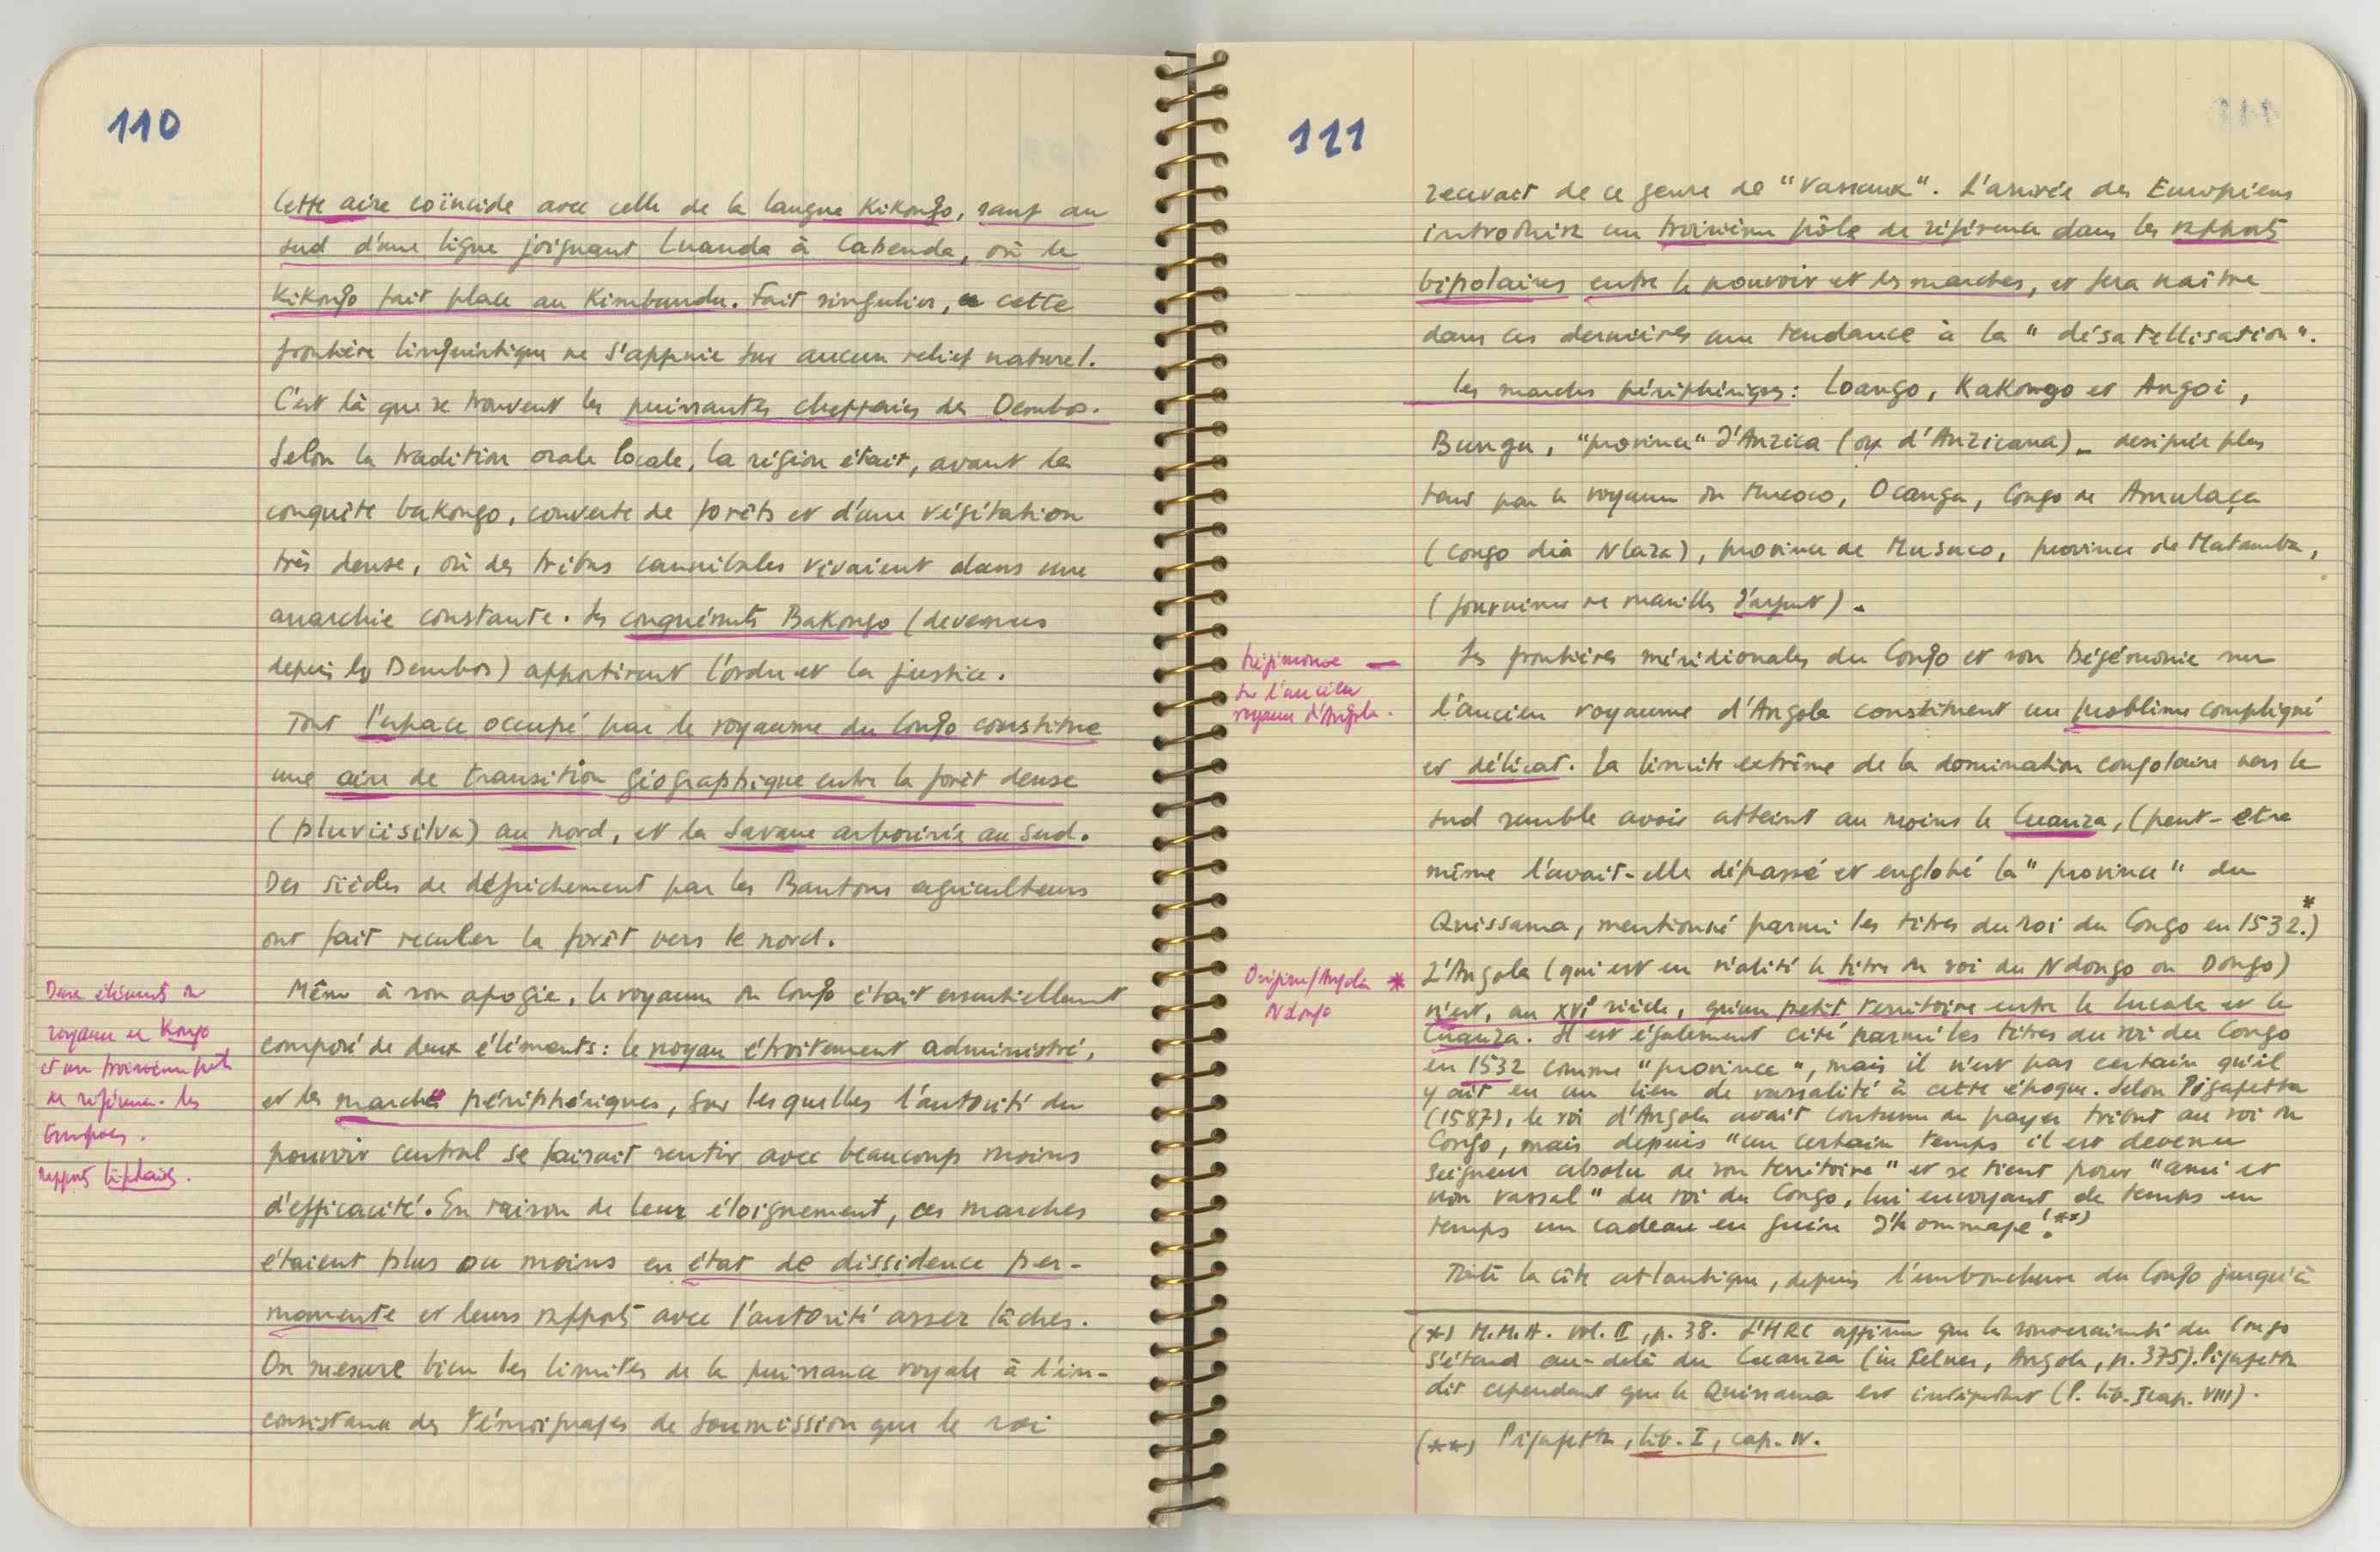 110
Cette aire coïncide avec celle de la langue Kikongo, sauf au
sud d'une ligne joignant Luanda à Cabenda, où le
Kikongo fait place au Kimbundu. Fait singulier, cette
frontière linguistique ne s'appuie sur aucun relief naturel.
C'est là que se trouvent les puissantes chefferies des Dembos.
Selon la tradition orale locale, la région était, avant la
conquête bakongo, couverte de forêts et d'une végétation
très dense, où des tribus cannibales vivaient dans une
anarchie constante. Les conquérants BaKongo (devenus
depuis les Dembos) apportèrent l'ordre et la justice.
Tout l'espace occupé par le royaume du Congo constitue
une aire de transition géographique entre la forêt dense
(pluviisilva) au nord, et la savane arborisée au sud.
Des siècles de défrichement par les Bantous agriculteurs
ont fait reculer la forêt vers le nord.
Deux éléments du
royaume de Kongo
et un troisième pôle
de référence. les
Européens.
rapports bipolaires.
Même à son apogée, le royaume du Congo était essentiellement
composé de deux éléments: le noyau étroitement administré,
et les marches périphériques, sur lesquelles l'autorité du
pouvoir central se faisait sentir avec beaucoup moins
d'efficacité. En raison de leur éloignement, ces marches
étaient plus ou moins en état de dissidence per-
manente et leurs rapports avec l'autorité assez lâches.
On mesure bien les limites de la puissance royale à l'in-
consistance des témoignages de soumission que le roi
111
recevait de ce genre de "vassaux". L'arrivée des Européens
introduira un troisième pôle de référence dans les rapports
bipolaires entre le pouvoir et les marches, et fera naître
dans ces dernières une tendance à la "désatellisation".
Les marches périphériques: Loango, KaKongo et Angoi,
Bungu, "province" d'Anzica (ou d'Anzicana) - designée plus
tard par le royaume du Mucoco, Ocanga, Congo de Amulaça
(Congo dia Nlaza), province de Musuco, province de Matamba,
(fournisseur de manilles d'argent).
hégémonie —
sur l'ancien
royaume d'Angola.
Les frontières méridionales du Congo et son hégémonie sur
l'ancien royaume d'Angola constituent un problème compliqué
et délicat. La limite extrême de la domination congolaise vers le
sud semble avoir atteint au moins le Cuanza, (peut-etre
même l'avait-elle dépassé et englobé la "province" du
Quissama, mentionné parmi les titres du roi du Congo en 1532.*)
Origine/Angola *
Ndongo
L'Angola (qui est en réalité le titre du roi du Ndongo ou Dongo)
n'est, au XVIe siècle, qu'un petit territoire entre le Lucala et le
Cuanza. Il est également cité parmi les titres du roi du Congo
en 1532 comme "province", mais il n'est pas certain qu'il
y ait eu un lien de vassalité à cette époque. Selon Pigafetta
(1587), le roi d'Angola avait coutume de payer tribut au roi du
Congo, mais depuis "un certain temps il est devenu
seigneur absolu de son territoire" et se tient pour "ami et
non vassal" du roi du Congo, lui envoyant de temps en
temps un cadeau en guise d'hommage.(**)
Toute la côte atlantique, depuis l'embouchure du Congo jusqu'à
(*) M.M.A. vol. II, p. 38. L'HRC affirme que la souveraineté du Congo
s'étend au-delà du Cuanza (in Felner, Angola, p. 375). Pigafetta
dit cependant que le Quissama est indépendant (P. lib. I cap. VIII).
(**) Pigafetta, lib. I, cap. IV.